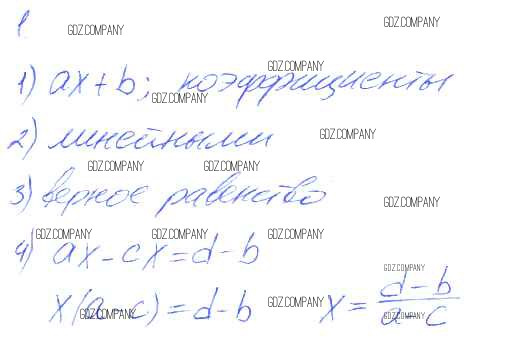 1.
GDZ.COMPANY GDZ.COMPANY
1) ax + b; коэффициенты
GDZ.COMPANY GDZ.COMPANY
2) линейными
GDZ.COMPANY
GDZ.COMPANY GDZ.COMPANY
3) верное равенство
GDZ.COMPANY
GDZ.COMPANY GDZ.COMPANY GDZ.COMPANY
4) ax - cx = d - b
GDZ.COMPANY
x(a - c) = d - b x = (d - b)/(a - c)
GDZ.COMPANY GDZ.COMPANY GDZ.COMPANY